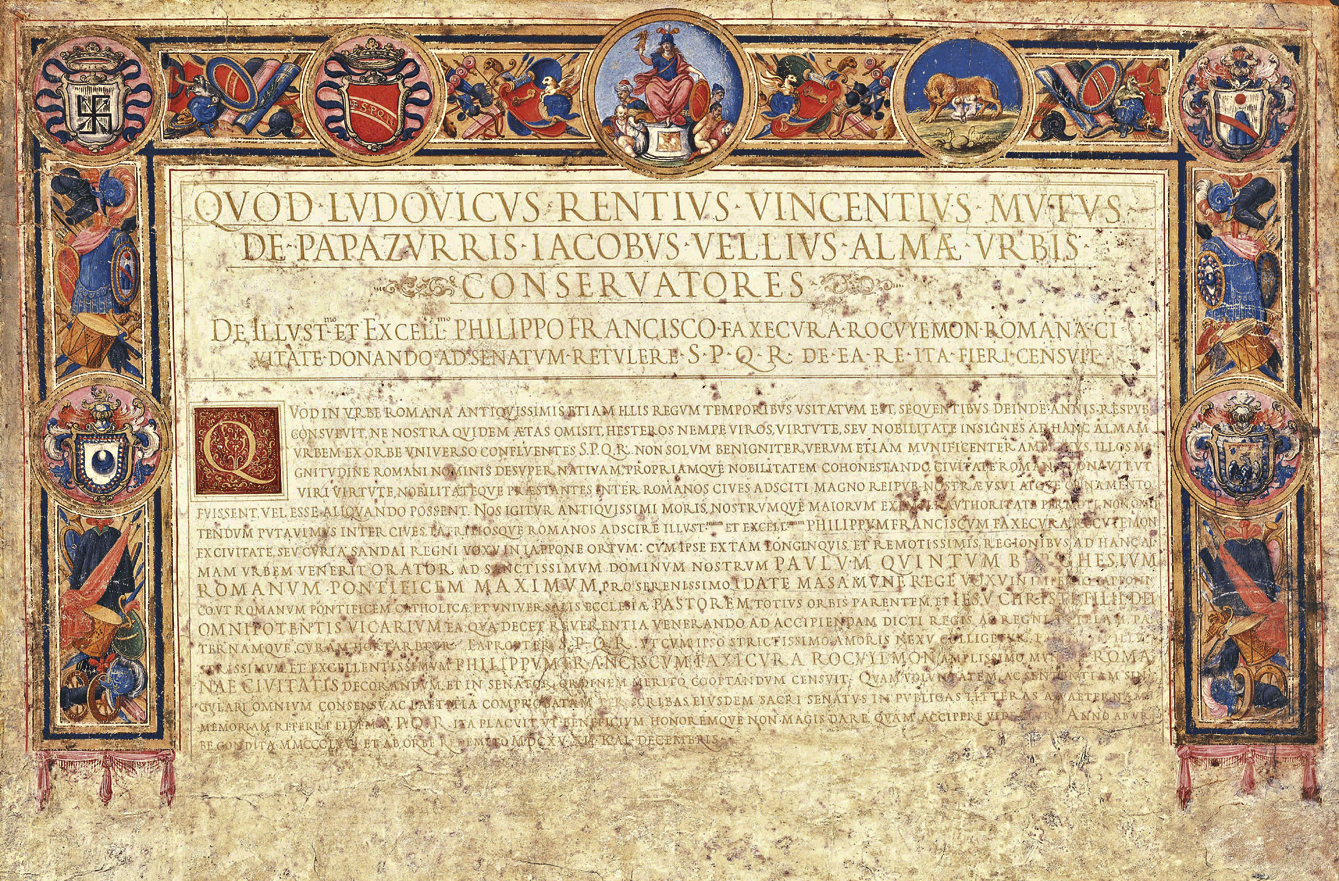 S·P·Q·R
QVOD·LVDOVICVS·RENTIVS·VINCENTIVS·MVTVS·
DE·PAPAZVRRIS·IACOBVS·VELLIVS·ALMÆ·VRBIS·
CONSERVATORES
DE·ILLVST.mo ET EXCELL.mo PHILIPPO FRANCISCO·FAXECVRA·ROCVYEMON·ROMANA·CI
VITATE·DONANDO·AD·SENATVM·RETVLERE·S·P·Q·R·DE·EA·RE·ITA·FIERI·CENSVIT·
QVOD IN VRBE ROMANA ANTIQVISSIMIS ETIAM ILLIS REGVM TEMPORIBVS VSITATVM EST, SEQVENTIBVS DEINDE ANNIS RESPVB
CONSVEVIT, NE NOSTRA QVIDEM ÆTAS OMISIT, HESTEROS NEMPE VIROS, VIRTVTE, SEV NOBILITATE INSIGNES AD HANC ALMAM
VRBEM EX ORBE VNIVERSO CONFLVENTES S.P.Q.R. NON SOLVM BENIGNITER, VERVM ETIAM MVNIFICENTER ILLOS MA
GNITVDINE ROMANI NOMINIS DESVPER NATIVAM, PROPRIAMQVE NOBILITATEM COHONESTANDO CIVITATE ROMANA DONAVIT VT
VIRI VIRTVTE, NOBILITATEQVE PRÆSTANTES INTER ROMANOS CIVES ADSCITI MAGNO REIPVB. NOSTRÆ VSVI ATQVE ORNAMENTO
FVISSENT, VEL ESSE ALIQVANDO POSSENT. NOS IGITVR ANTIQVISSIMI MORIS, NOSTRVMQVE MAIORVM AVTHORITATE
TENDVM PVTAVIMVS INTER CIVES PATRITIOSQVE ROMANOS ADSCIRE ILLVST.mum ET EXCELL.mum PHILIPPVM FRANCISCVM FAXECVRA ROCVYEMON
EX CIVITATE, SEV CVRIA SANDAI REGNI VOXV IN IAPPONE ORTVM: CVM IPSE EX TAM LONGINQVIS, ET REMOTISSIMIS REGIONIBVS AD HANC AL
MAM VRBEM VENERIT ORATOR AD SANCTISSIMVM DOMINVM NOSTRVM PAVLVM QVINTVM BVRGHESIVM
ROMANVM PONTIFICEM MAXIMVM, PRO SERENISSIMO IDATE MASAMVNE REGE VOXV IN IMPERIO IAPPONI
CO VT ROMANVM PONTIFICEM CATHOLICÆ, ET VNIVERSALIS ECCLESIÆ PASTOREM, TOTIVS ORBIS PARENTEM, ET IESV CHRISTI FILII DEI
OMNIPOTENTIS VICARIVM EA QVA DECET REVERENTIA VENERANDO AD ACCIPIENDAM DICTI REGIS, AC REGNI TVTELAM PA
TERNAMQVE CVRAM HORTARETVR EAPROPTER S.P.Q.R. VT CVM IPSO STRICTISSIMO AMORIS NEXV COLLIGETVR,
STRISSIMVM ET EXCELLENTISSIMVM PHILIPPVM FRANCISCVM FAXICVRA ROCVYEMON AMPLISSIMO ROMA
NAE CIVITATIS DECORANDVM, ET IN SENATOR. ORDINEM MERITO COOPTANDVM CENSVIT; QVAM VOLVNTATEM, AC SENTENTIAM SIN
GVLARI OMNIVM CONSENSV, AC LÆTITIA COMPROBATAM PER SCRIBAS EIVSDEM SACRI SENATVS IN PVBLICAS LITTERAS AD ÆTERNAM
MEMORIAM REFERRI EIDEM S.P.Q.R. ITA PLACVIT VT BENEFICIVM HONOREMQVE NON MAGIS DARE QVAM ACCIPERE VIDEATVR. ANNO AB VR
BE CONDITA ET AB ORBE REDEMPTO MDCXV XII KAL DECEMBRIS